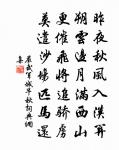 昨夜秋風入漢關
朔雲邊月滿西山
更催飛將追驕虜
莫遣沙場匹馬還
嚴武軍城早秋詞典網
集